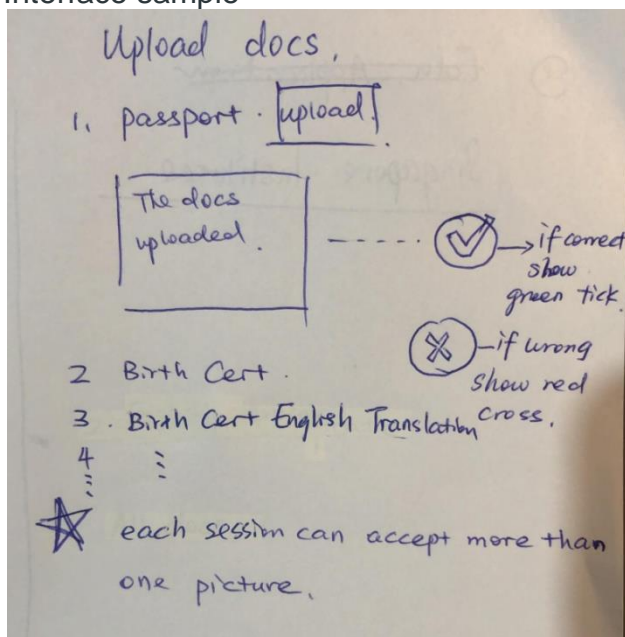 Interface sample
Upload docs.
1. passport. upload.
The docs
uploaded.
if correct
show
green tick.
if wrong
show red
cross.
2 Birth Cert.
3. Birth Cert English Translation
4
each session can accept more than
one picture.